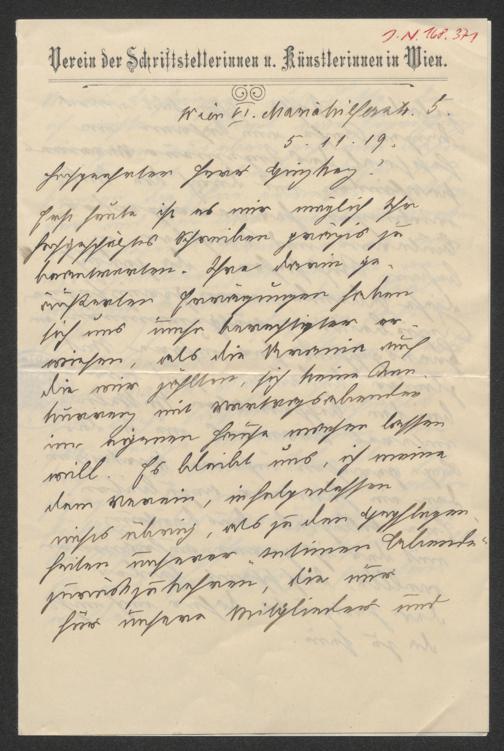 J.N. 168.371
Verein der Schriftstellerinnen u. Künstlerinnen in Wien.
Wien VI. Mariahilferstr. 5.
5.11.19.
Hochgeehrter Herr Ginzkey!
Erst heute ist es mir möglich Ihr
hochgeschätztes Schreiben präzis zu
beantworten. Ihre darin ge-
äußerten Erwägungen haben
sich uns umso berechtigter er-
wiesen, als die Urania auf
die wir zählten, sich keine Kon-
kurrenz mit Vortragsabenden
im eigenen Hause machen lassen
will. Es bleibt uns, ich meine
dem Verein, infolgedessen
nichts übrig, als zu den Gepflogen-
heiten unserer "intimen Abende"
zurückzukehren, die nur
für unsere Mitglieder und